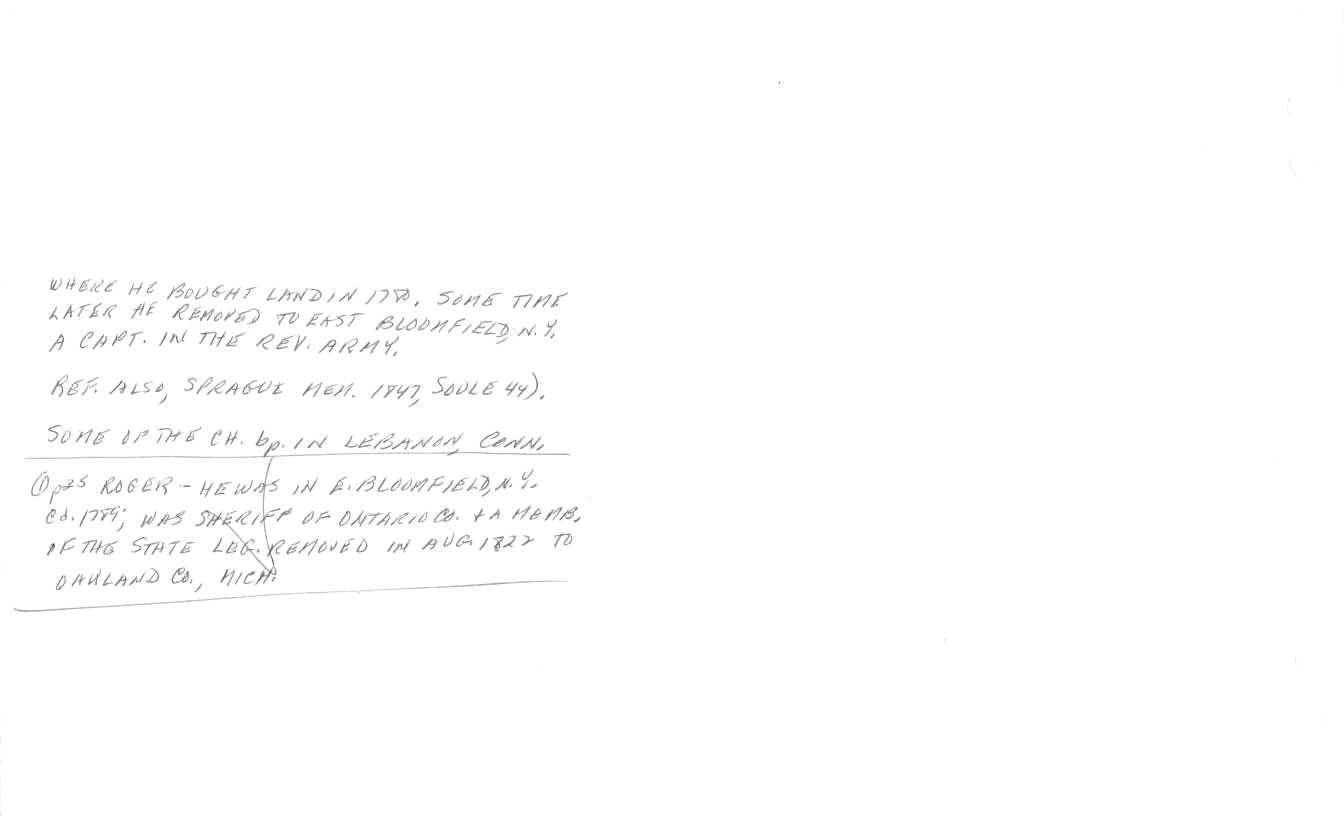 WHERE HE BOUGHT LAND IN 1780. SOME TIME
LATER HE REMOVED TO EAST BLOOMFIELD, N.Y.
A CAPT. IN THE REV. ARMY.
REF. ALSO, SPRAGUE MEM. 1847, SOULE 44).
SOME OF THE CH. bp. IN LEBANON, CONN.
① p25 ROGER - HE WAS IN E. BLOOMFIELD, N.Y.
Cd. 1789; WAS SHERIFF OF ONTARIO CO. + A MEMB.
OF THE STATE LEG. REMOVED IN AUG. 1822 TO
OAKLAND CO., MICH.